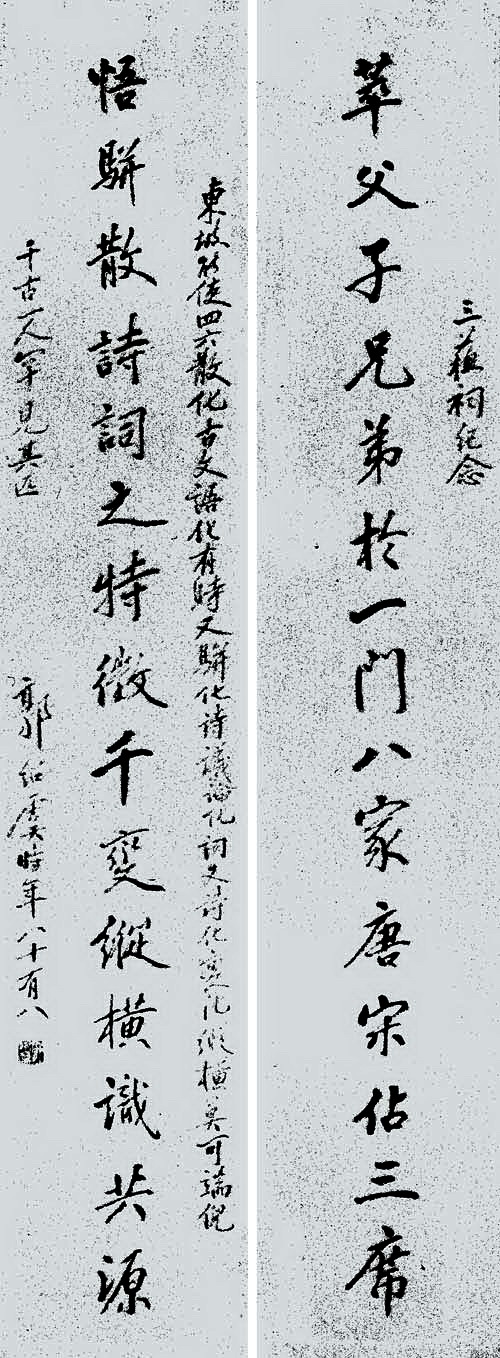 三蘇祠紀念
萃父子兄弟於一門八家唐宋佔三席
東坡能使四六散化古文語化有時又駢化詩議論化詞又詩化變化縱橫莫可端倪
悟駢散詩詞之特徵千變縱橫識共源
千古一人罕見其匹 郭紹虞時年八十有八